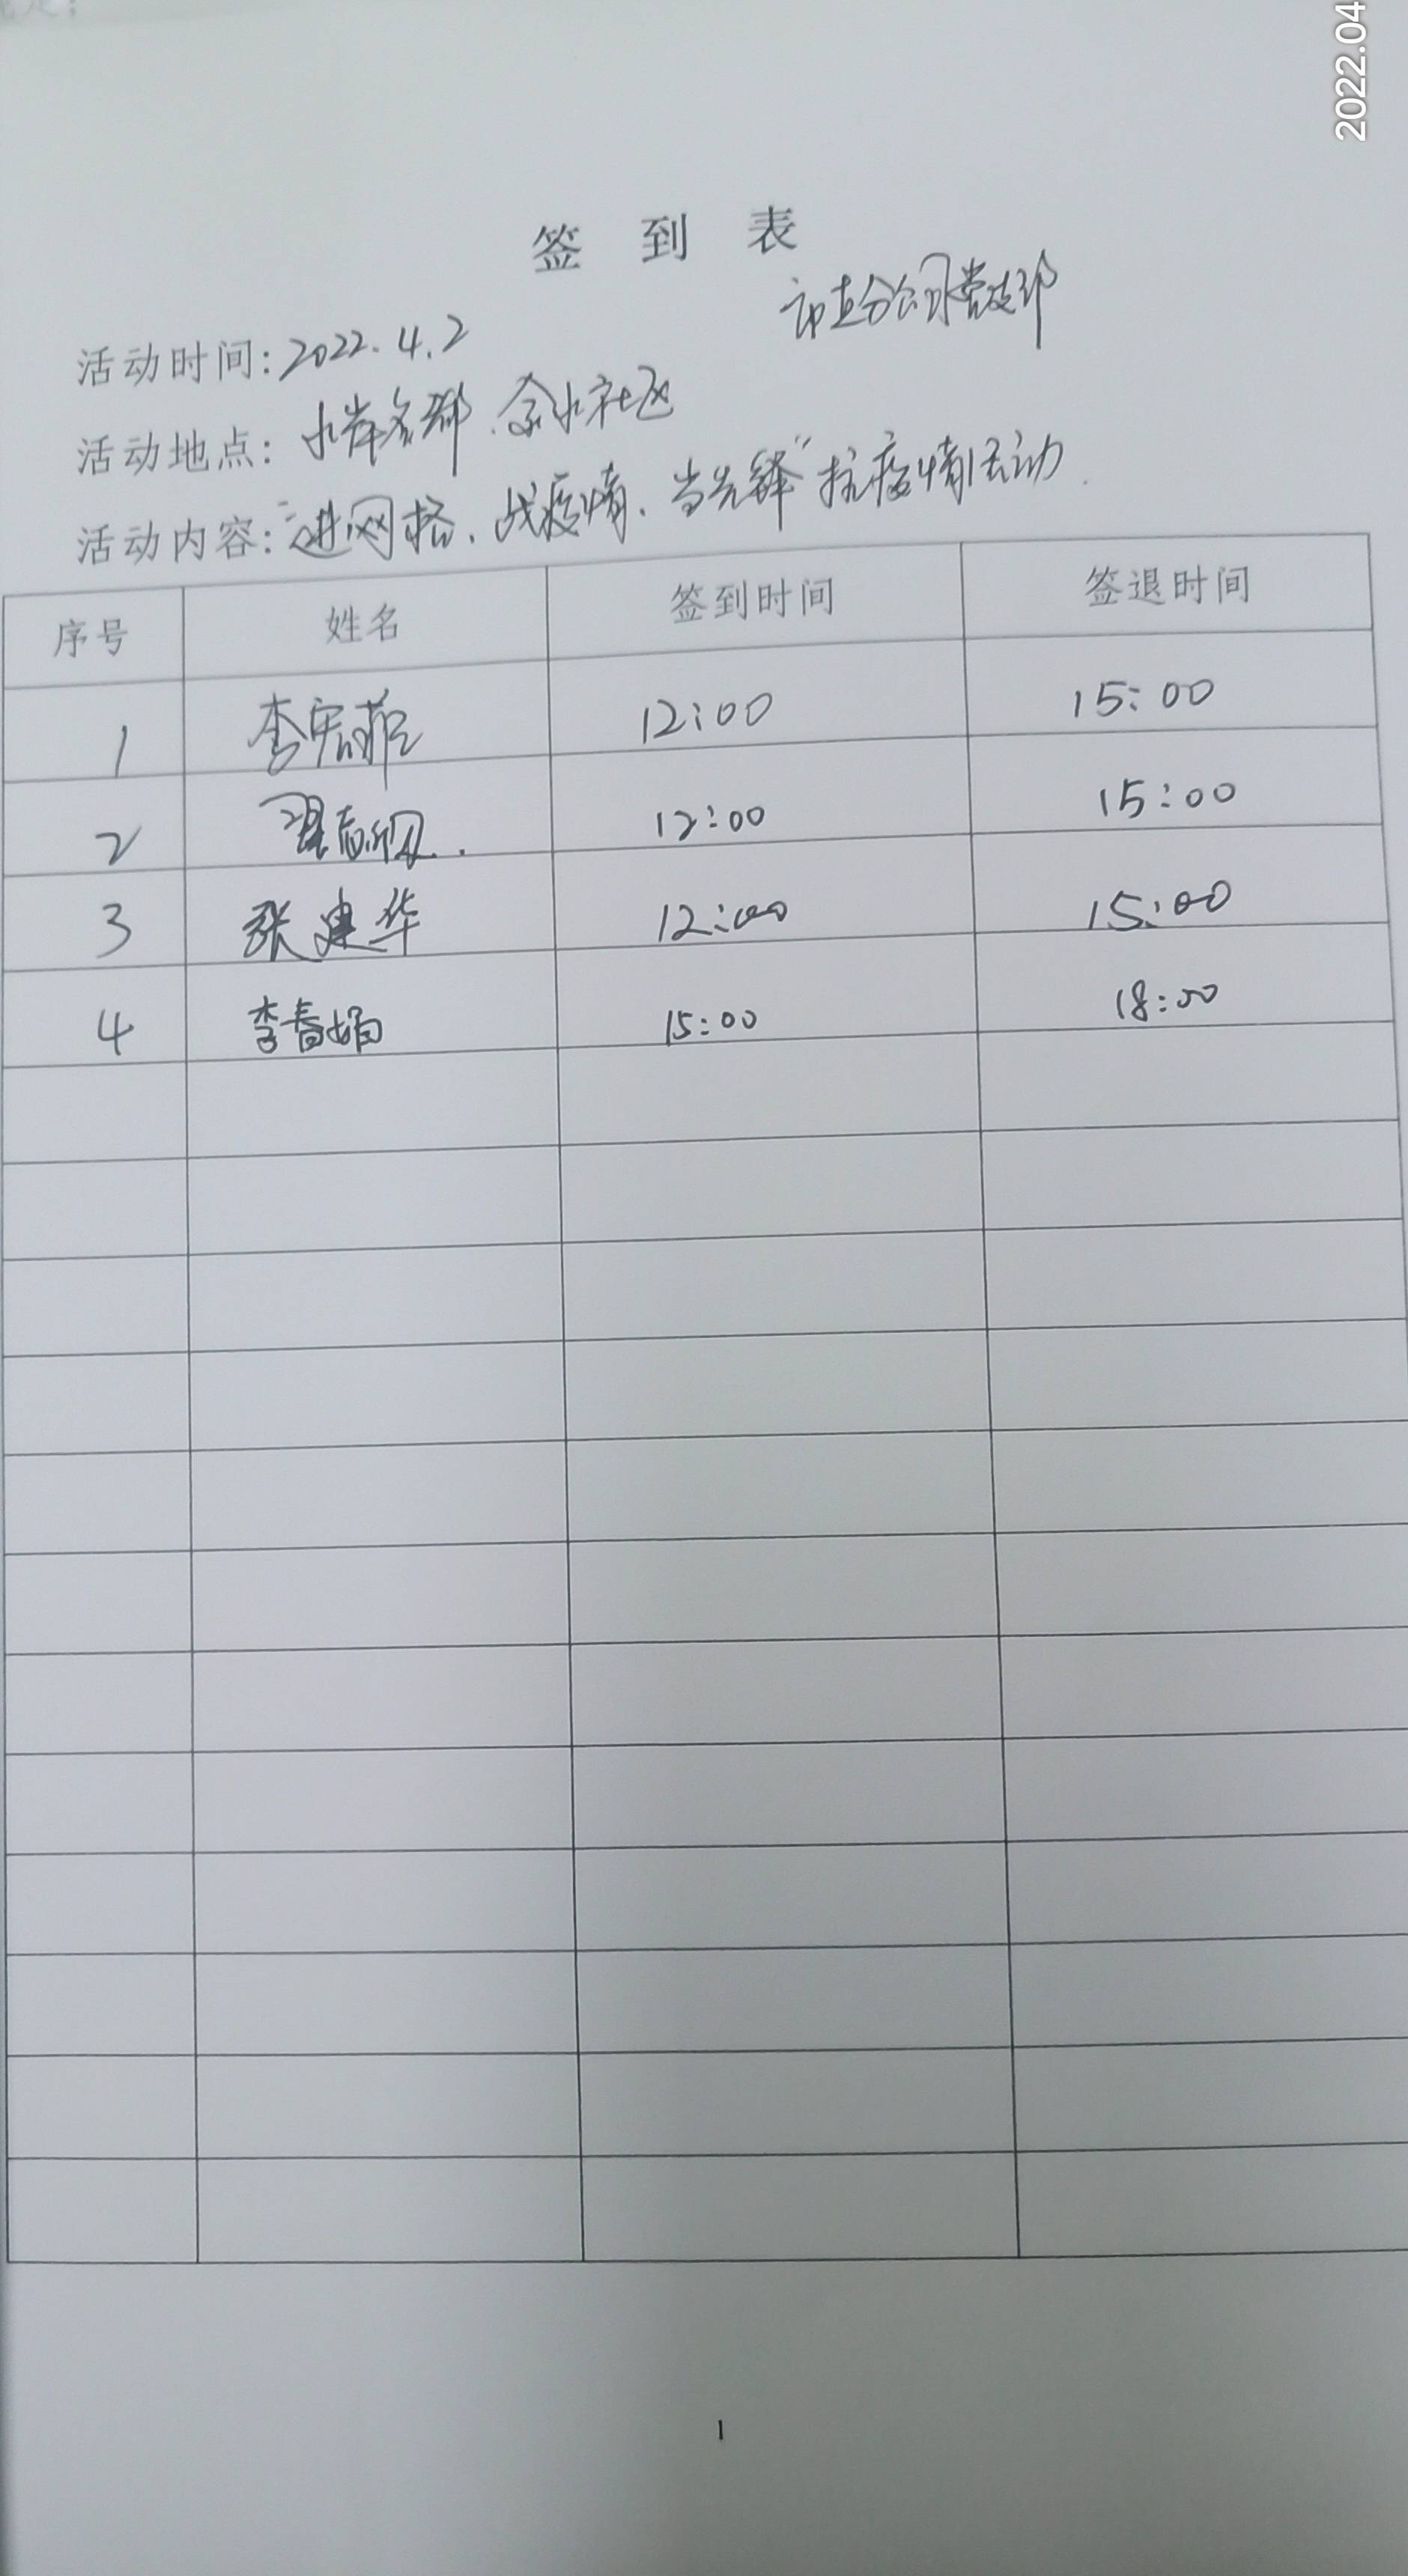 2022.04
签到表
市直分公司党支部
活动时间:2022.4.2
活动地点:水岸名郡、余水社区
活动内容:"进网格、战疫情、当先锋"抗疫情活动.
序号 姓名 签到时间 签退时间
1 李宪 12:00 15:00
2 12:00 15:00
3 张建华 12:00 15:00
4 李春娟 15:00 18:00
1